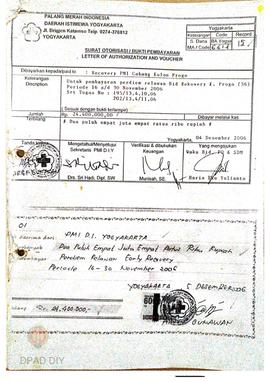 PALANG MERAH INDONESIA
DAERAH ISTIMEWA YOGYAKARTA
Jl. Brigjen Katamso Telp. 0274-376812
YOGYAKARTA
Yogyakarta
Keterangan Code Record
S. Dana
MA / Code
SURAT OTORISASI / BUKTI PEMBAYARAN
LETTER OF AUTHORIZATION AND VOUCHER
Dibayarkan kepada/paid to : Recovery PMI Cabang Kulon Progo
Keterangan : Untuk pembayaran perdiem relawan Bid Rekovery K. Progo (36)
Description Periode 16 s/d 30 November 2006
Srt Tugas No : 195/13.4,10.06
202/13.4/11.06
(Sesuai dengan bukti terlampir)
Jumlah : Rp 24.400.000,00 / Dibayar melalui kas
Terbilang # Dua puluh empat juta empat ratus ribu rupiah #
04 Desember 2006
Mengetahui/Menyetujui
Sekretaris PMI D.I.Y
Verifikasi & dibukukan
Keuangan
Yang mengajukan
Waka Bid. PB & SDM
Drs. Sri Hadi, Dipl. SW
Munisah, SE.
Haris Eko Yulianto
01
PMI D.I. YOGYAKARTA
Dua Puluh Empat Juta Empat Ratus Ribu Rupiah
Perdiem Relawan Early Recovery
Periode 16-30 November 2006
YOGYAKARTA 5 DESEMBER 2006
24.400.000,-
GUNAWAN
DPAD DIY